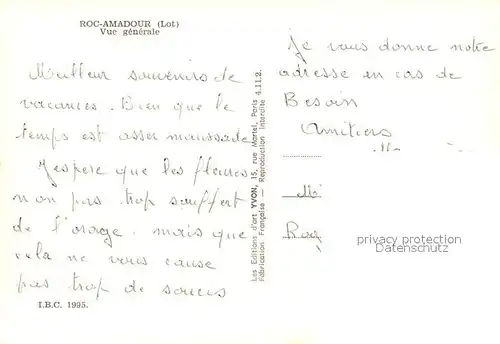 ROC-AMADOUR (Lot)
Vue générale
Meilleur souvenirs de
vacances. Bien que le
temps est asser maussade
J'espere que les fleures
non pas trop souffert
de l'orage. mais que
cela ne vous cause
pas trop de soucis
I.B.C. 1995.
Les Editions d'art YVON, 15, rue Martel, Paris 4.11.2.
Fabrication Française — Reproduction Interdite
Je vous donne notre
adresse en cas de
Besoin
Amitiers
M
privacy protection
Datenschutz